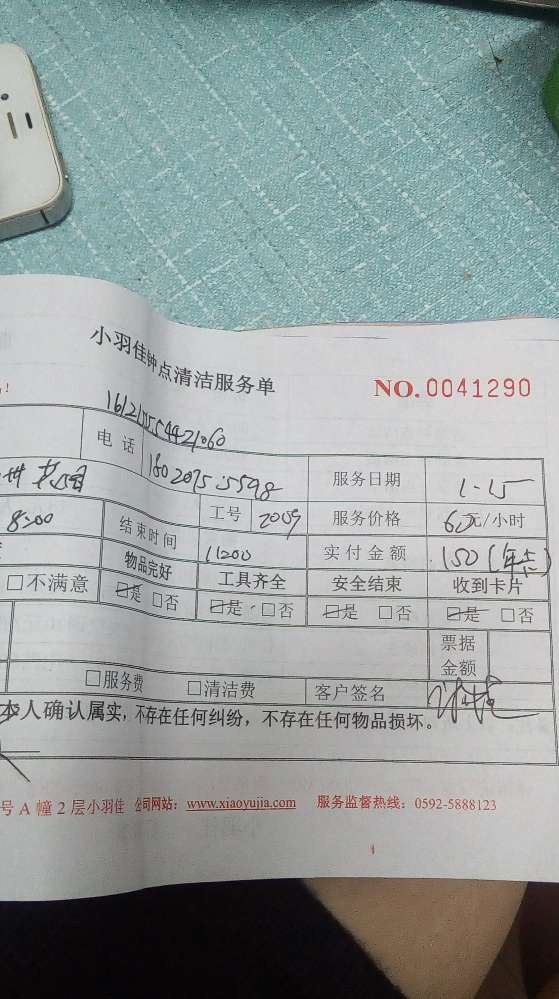 小羽佳钟点清洁服务单
NO. 0041290
!
电 话
180 2075 5598
服务日期
1-15
花园
8:00
结束时间
11:00
工号
2009
服务价格
60元/小时
实付金额
150
□不满意
物品完好
工具齐全
安全结束
收到卡片
☑是 □否
☑是 □否
☑是 □否
☑是 □否
票据
金额
□服务费
□清洁费
客户签名
本人确认属实,不存在任何纠纷,不存在任何物品损坏。
号 A 幢 2 层小羽佳 公司网站: www.xiaoyujia.com 服务监督热线: 0592-5888123